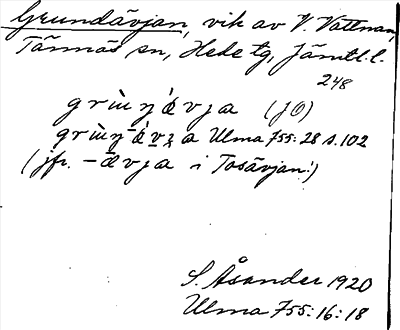 Grundävjan, vik av V. Vattnan,
Tännäs sn, Hede tg, Jämtl. l.
248
grùŋǽvja (JÖ)
grùŋ-ǽvja Ulma 755:28 s. 102
(jfr. -ævja i Tosävjan!)
S. Åsander 1920
Ulma 755:16:18